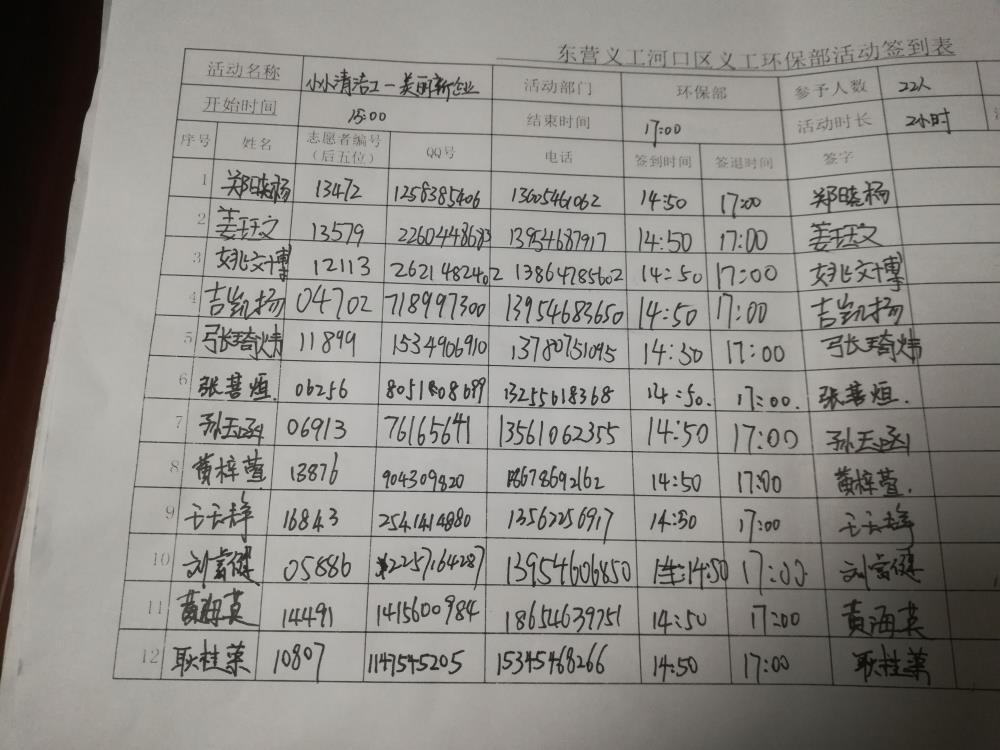 东营义工河口区义工环保部活动签到表
活动名称 小小清洁工-美丽新企业 活动部门 环保部 参予人数 22人
开始时间 15:00 结束时间 17:00 活动时长 2小时
序号 姓名 志愿者编号(后五位) QQ号 电话 签到时间 签退时间 签字
1 郑晓杨 13472 1258385406 13605461062 14:50 17:00 郑晓杨
2 姜珏文 13579 2260448683 13954687917 14:50 17:00 姜珏文
3 姚文博 12113 2621482402 13864785602 14:50 17:00 姚文博
4 吉凯扬 04702 718997300 13954683650 14:50 17:00 吉凯扬
5 张琦炜 11899 1534906910 13780751095 14:50 17:00 张琦炜
6 张善烜. 06256 13255618368 14:50. 17:00. 张善烜.
7 孙玉函 06913 76165641 13561062355 14:50 17:00 孙玉函
8 黄梓萱 13876 904309820 18678692162 14:50 17:00 黄梓萱.
9 16843 2541414880 13562256917 14:50 17:00
10 刘富健 05886 2257164287 13954606850 14:50 17:00 刘富健
11 黄海英 14491 1415600984 18654639751 14:50 17:00 黄海英
12 耿桂荣 10807 1147545205 15345468266 14:50 17:00 耿桂荣